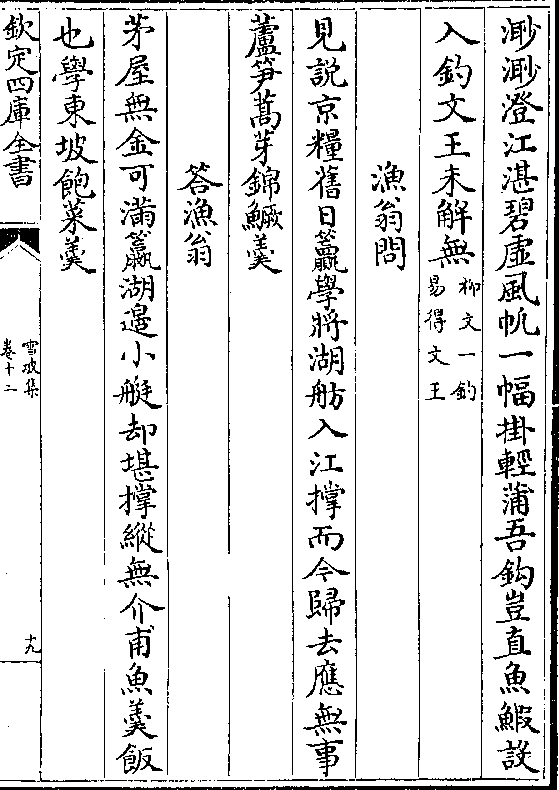 渺渺澄江湛碧虛風帆一幅掛輕蒲吾鈎豈直魚鰕設
入釣文王未解無
柳文一釣
易得文王
漁翁問
見説京糧舊日籯學將湖舫入江撑而今歸去應無事
蘆笋蒿芽錦鱖羮
答漁翁
茅屋無金可滿籯湖邉小艇却堪撑縱無介甫魚羮飯
也學東坡飽菜羮
欽定四庫全書
雪坡集
卷十二
十九